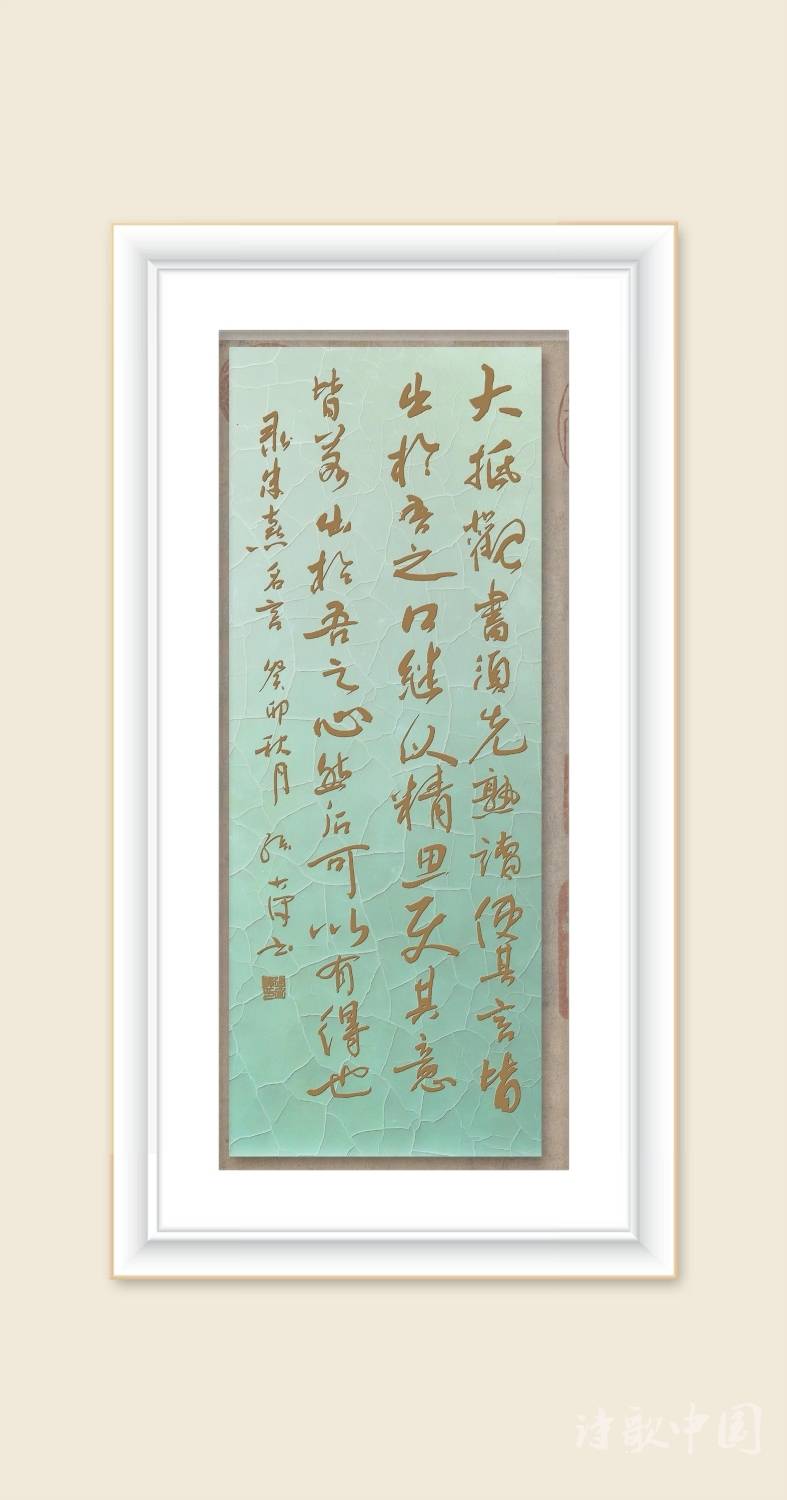 大抵觀書須先熟讀使其言皆
出於吾之口继以精思其意
皆若出於吾之心然后可以有得也
录朱熹名言 癸卯秋月 书
诗歌中国